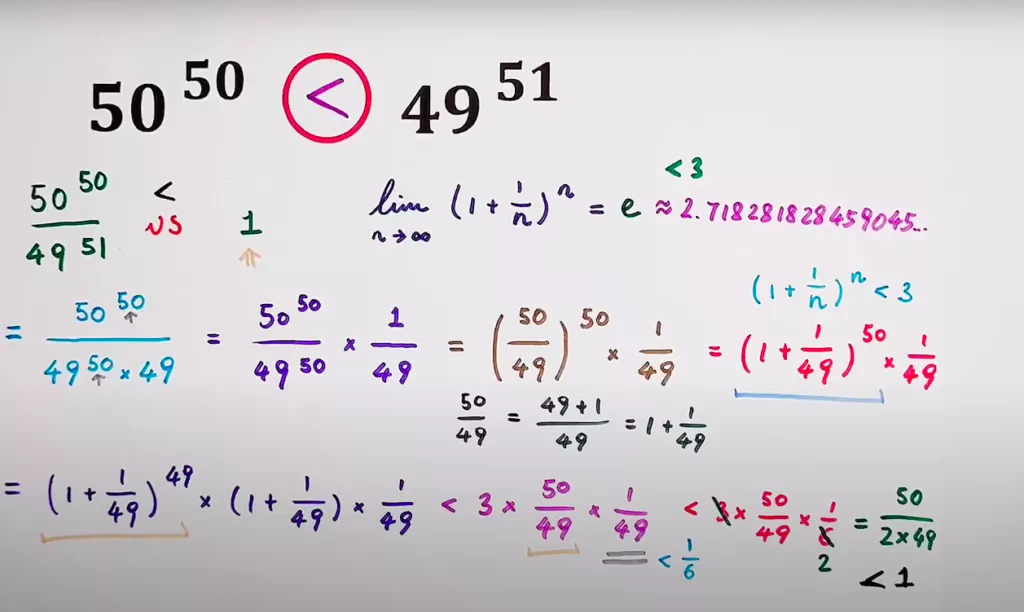 50^50 < 49^51
50^50 / 49^51 < vs 1 ⇑
lim n→∞ (1 + 1/n)^n = e ≈ 2.718281828459045... < 3
(1 + 1/n)^n < 3
= 50^50 / (49^50 × 49) = 50^50 / 49^50 × 1/49 = (50/49)^50 × 1/49 = (1 + 1/49)^50 × 1/49
50/49 = (49+1)/49 = 1 + 1/49
= (1 + 1/49)^49 × (1 + 1/49) × 1/49 < 3 × 50/49 × 1/49 < 3 × 50/49 × 1/6 = 50/(2×49)
< 1/6
2
< 1